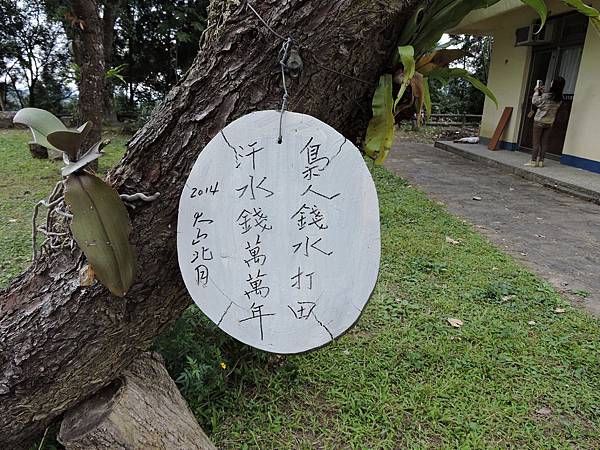 梟人錢水打田
汗水錢萬萬年
2014